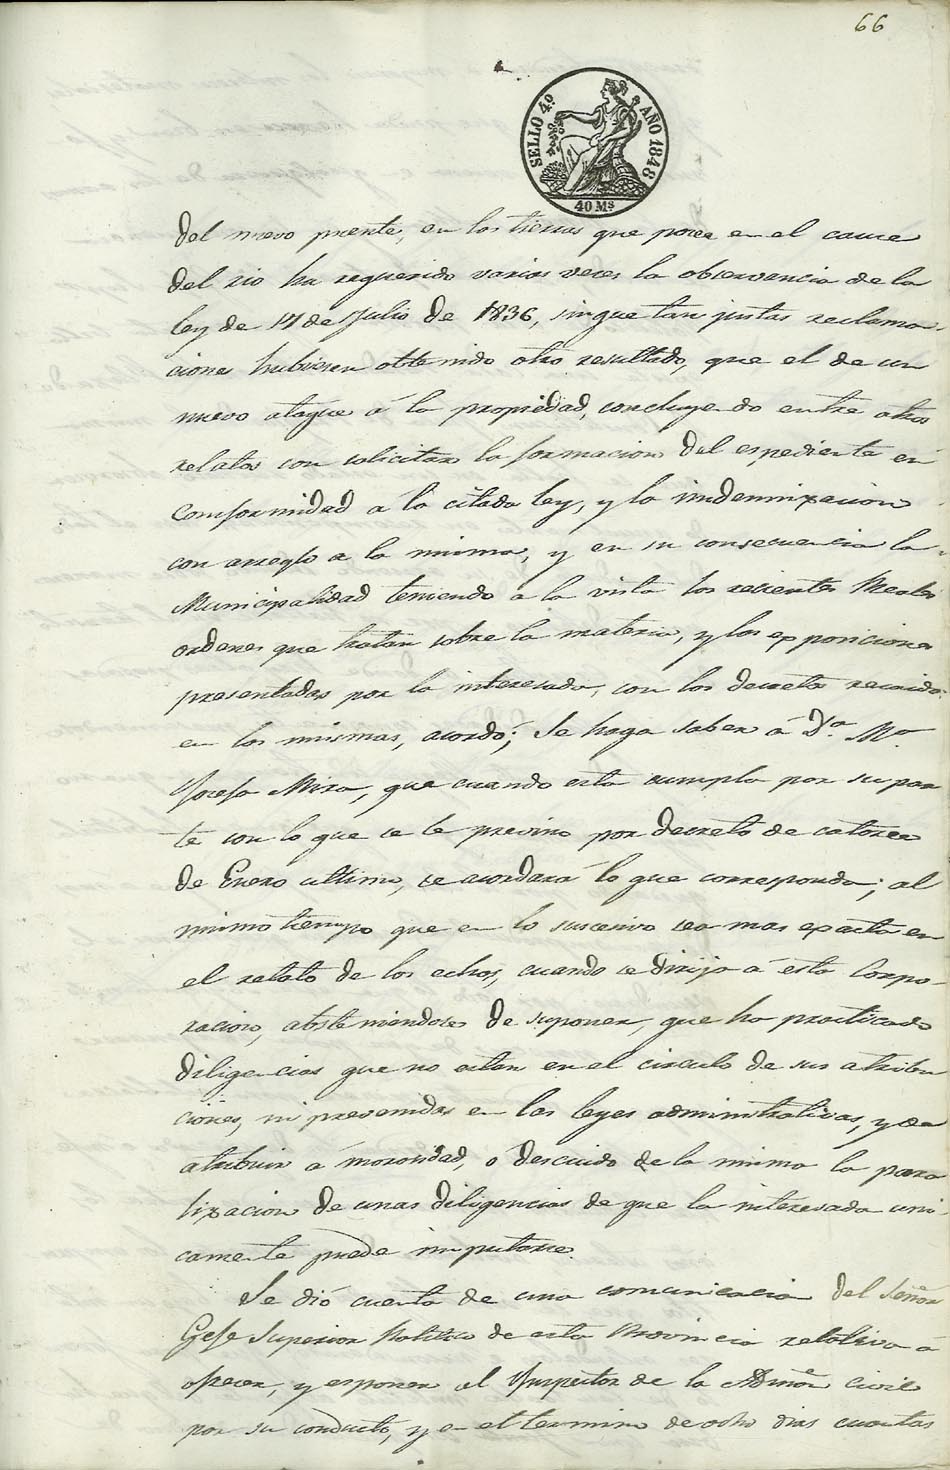 66
SELLO 4º AÑO 1848
40 Ms
del nuevo puente, en las tierras que posee en el cauce
del rio ha requerido varias veces la observancia de la
ley de 17 de Julio de 1836, sin que tan justas reclama-
ciones hubiesen obtenido otro resultado, que el de un
nuevo ataque á la propiedad, concluyendo entre otros
relatos con solicitar la formacion del espediente en
conformidad á la citada ley, y la indemnizacion
con arreglo a la misma, y en su consecuencia la
Municipalidad teniendo a la vista las recientes Reales
ordenes que tratan sobre la materia, y las exposiciones
presentadas por la interesada, con los decretos recaidos
en las mismas, acordó; Se haga saber á Dª Mª
Josefa Mira, que cuando esta cumpla por su par
te con lo que se le previno por decreto de catorce
de Enero ultimo, se acordará lo que corresponda; al
mismo tiempo que en lo sucesivo sea mas exacta en
el relato de los echos, cuando se dirija á esta Corpo-
racion, absteniendose de suponer, que ha practicado
diligencias que no esten en el circulo de sus atribu
ciones, ni prevenidas en las leyes administrativas, y de
atribuir á morosidad, o descuido de la misma la para
lizacion de unas diligencias de que la interesada uni-
camente puede imputarse.
Se dió cuenta de una comunicacion del Señor
Gefe Superior Politico de esta Provincia relativa a
ofrecer, y esponer al Inspector de la Admon civil
por su conducto, y en el termino de ocho dias cuantas